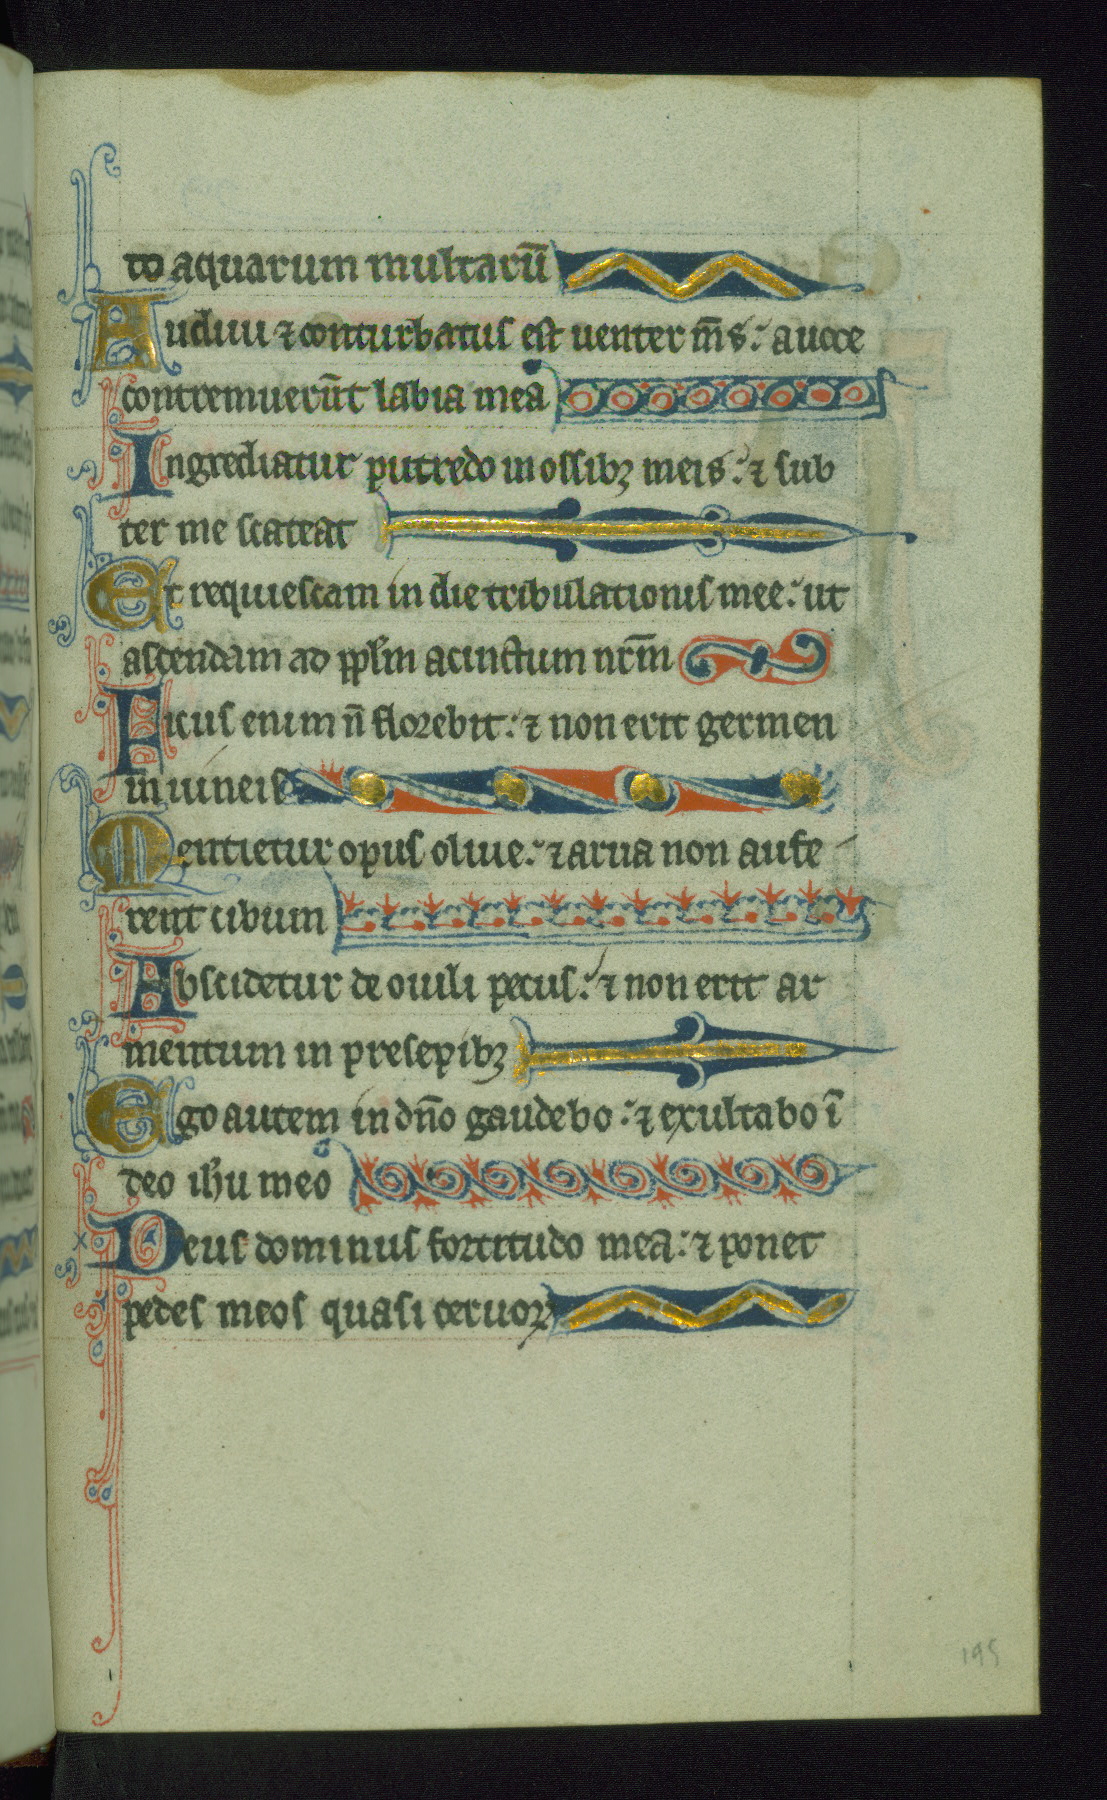 to aquarum multarū
Audiui ⁊ conturbatus est uenter m̄s: auoce
contremuerūt labia mea
Ingrediatur putredo in ossibꝫ meis: ⁊ sub
ter me scateat
Et requiescam in die tribulationis mee: ut
ascendam ad pplm̄ accinctum nrm̄
Ficus enim n̄ florebit: ⁊ non erit germen
in uineis
Mentietur opus oliue: ⁊ arua non affe
rent cibum
Abscidetur de ouili pecus: ⁊ non erit ar
mentum in presepibꝫ
Ego autem in dn̄o gaudebo: ⁊ exultabo ī
deo ihu meo
Deus dominus fortitudo mea: ⁊ ponet
pedes meos quasi ceruoꝝ
195